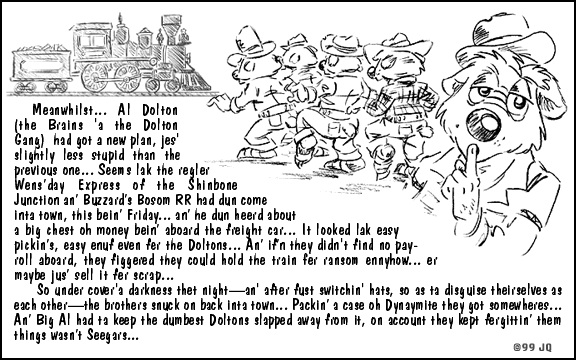 Meanwhilst... Al Dolton
(the Brains 'a the Dolton
Gang) had got a new plan, jes'
slightly less stupid than the
previous one... Seems lak the regler
Wens'day Express of the Shinbone
Junction an' Buzzard's Bosom RR had dun come
inta town, this bein' Friday... an' he dun heerd about
a big chest oh money bein' aboard the freight car... It looked lak easy
pickin's, easy enuf even fer the Doltons... An' if'n they didn't find no pay-
roll aboard, they figgered they could hold the train fer ransom ennyhow... er
maybe jus' sell it fer scrap...
So under cover'a darkness thet night—an' after fust switchin' hats, so as ta disguise theirselves as
each other—the brothers snuck on back inta town... Packin' a case oh Dynaymite they got somewheres...
An' Big Al had ta keep the dumbest Doltons slapped away from it, on account they kept fergittin' them
things wasn't Seegars...
©99 JQ